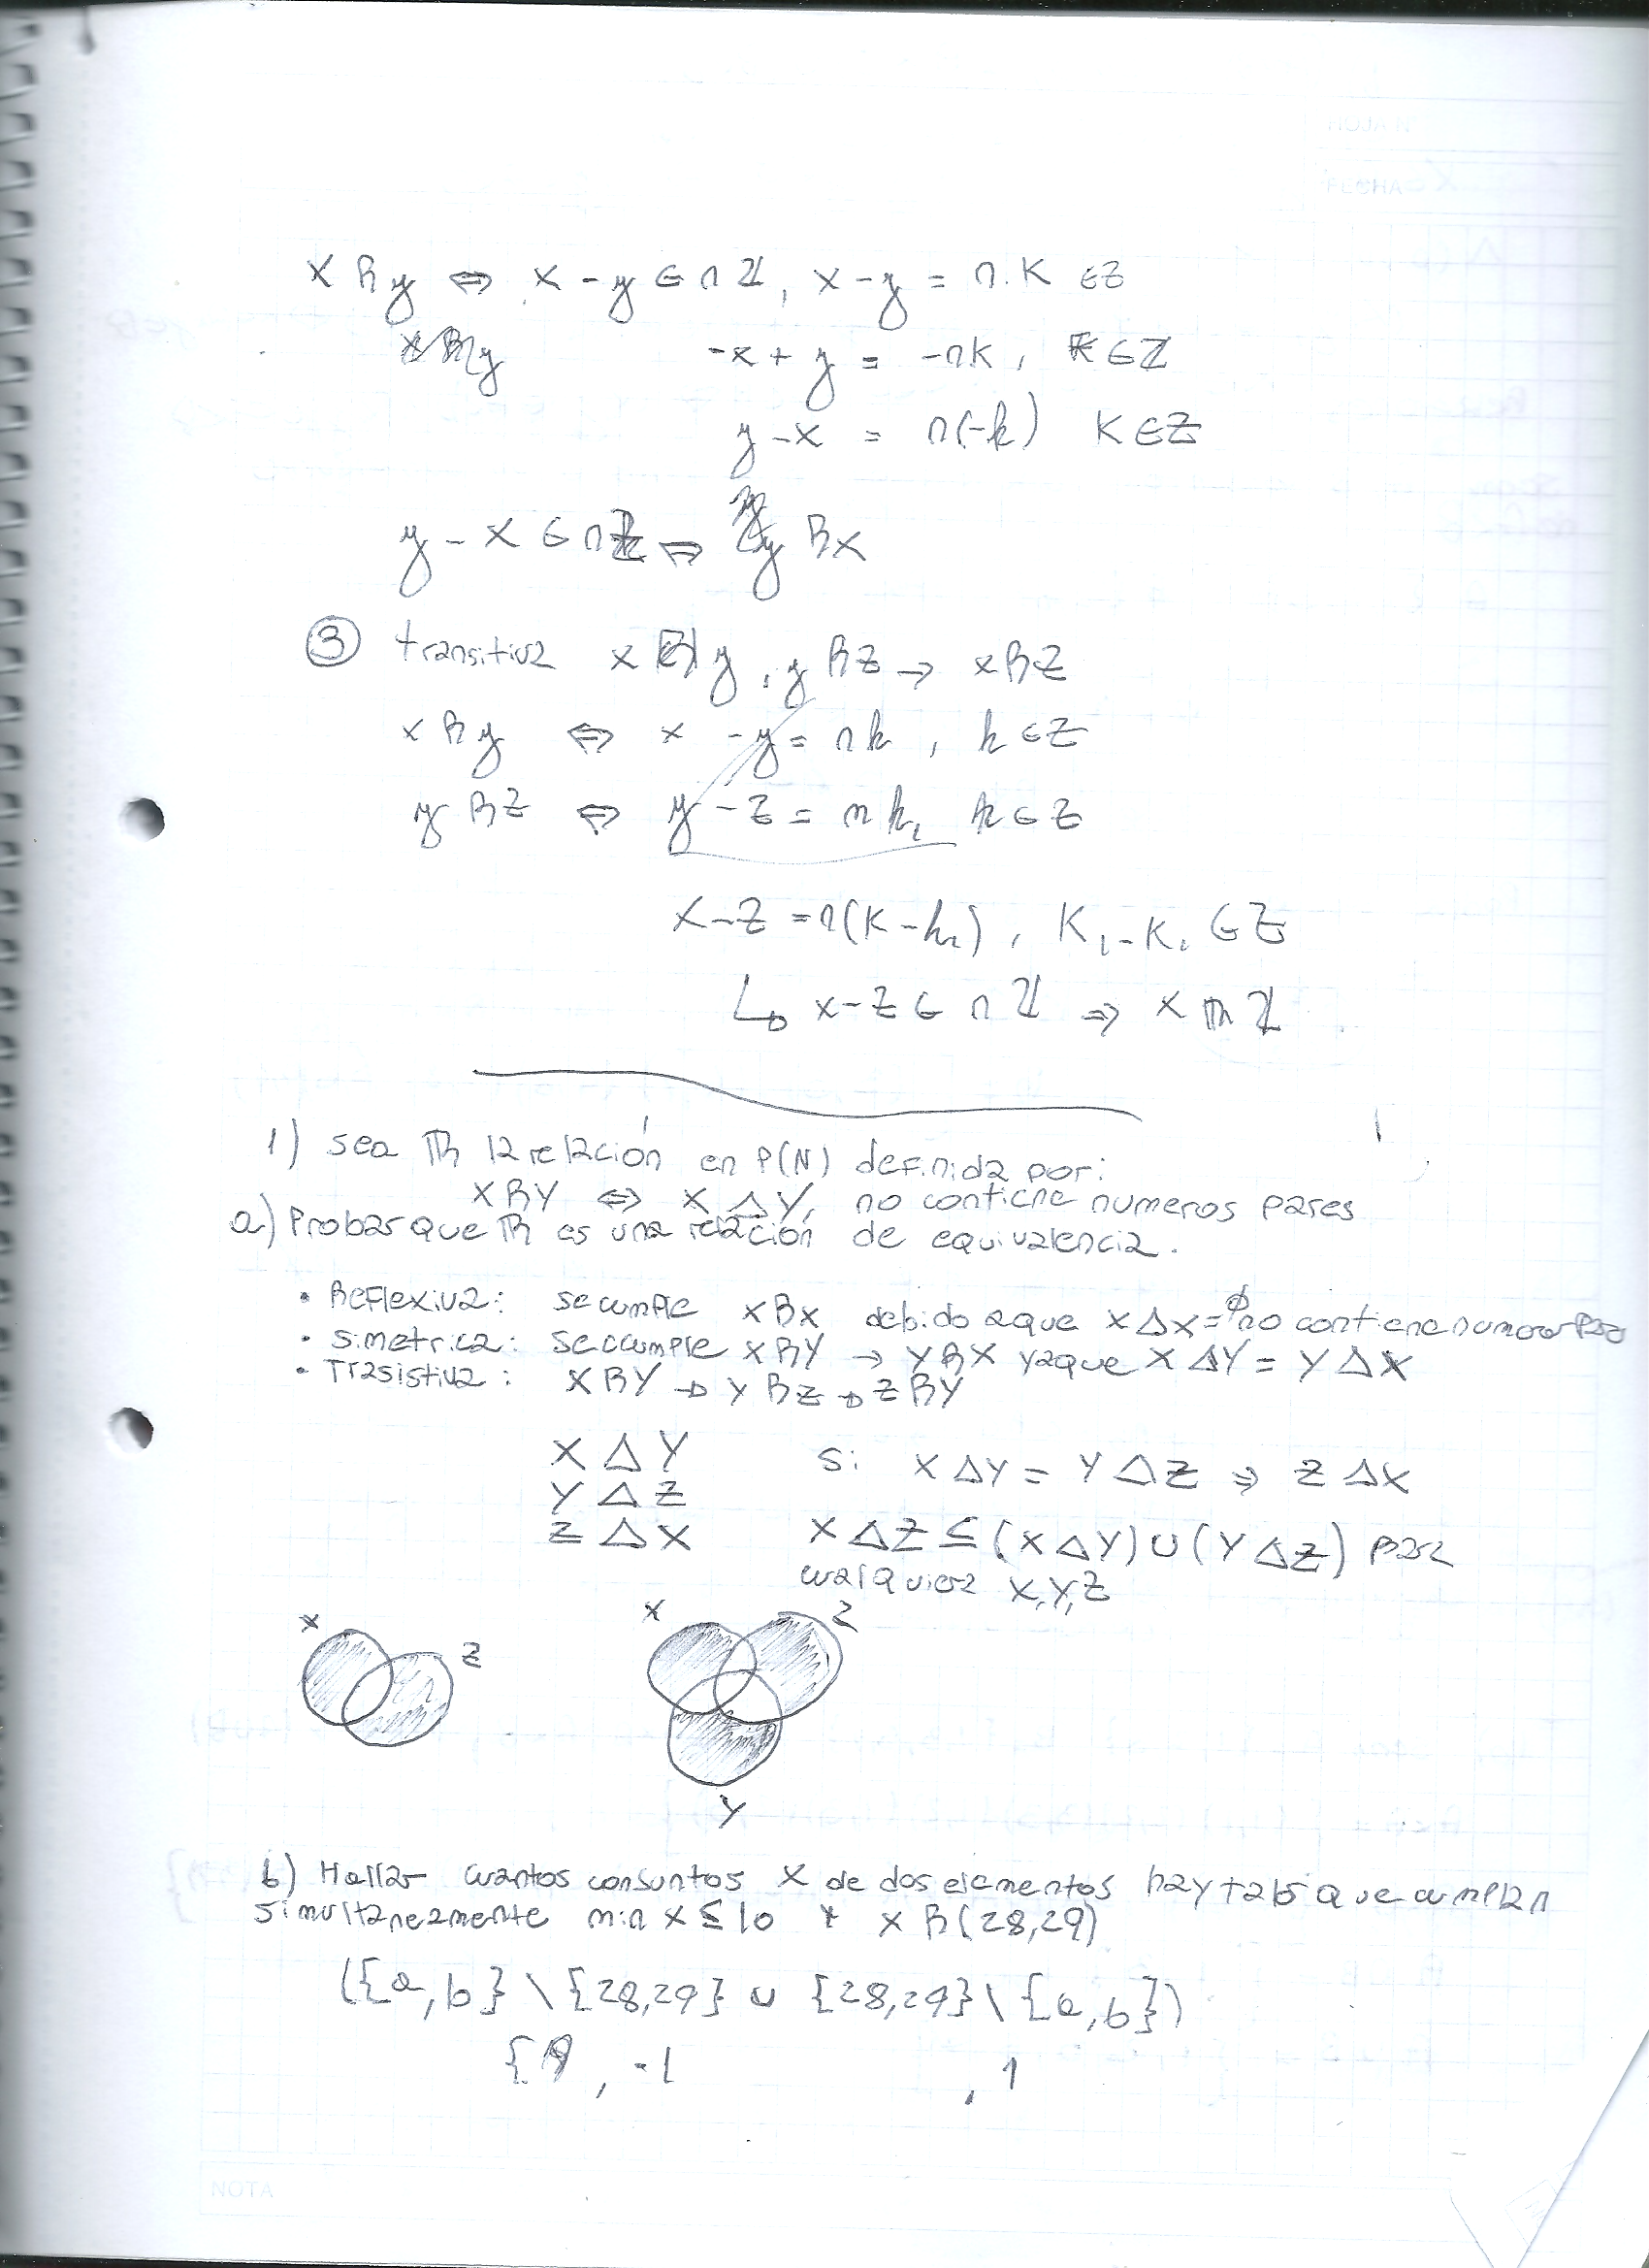 HOJA Nº
FECHA
x R y ⇔ x - y ∈ nℤ, x - y = n.K ∈ Z
-x + y = -nK, K ∈ Z
y - x = n(-k) K ∈ Z
y - x ∈ nZ ⇔ y R x
③ transitiva x R y, y R Z → x R Z
x R y ⇔ x - y = nk, k ∈ Z
y R Z ⇔ y - z = nk₂ k ∈ Z
x - z = n(K - k₂), K₁ - K₂ ∈ Z
↳ x - z ∈ nℤ ⇒ x R Z
1) sea R la relación en P(N) definida por:
X R Y ⇔ X Δ Y, no contiene numeros pares
a) Probar que R es una relación de equivalencia.
• Reflexiva: se cumple x R x debido a que x Δ x = ϕ no contiene numeros par
• simetrica: se cumple X R Y → Y R X ya que X Δ Y = Y Δ X
• Trasistiva: X R Y → Y R Z → Z R Y
X Δ Y Si X Δ Y = Y Δ Z ⇒ Z Δ X
Y Δ Z
Z Δ X X Δ Z ⊆ (X Δ Y) ∪ (Y Δ Z) para
cualquiera X, Y, Z
X Z X Z
Y
b) Hallar cuantos conjuntos X de dos elementos hay tales que cumplan
simultaneamente min x ≤ 10 x R (28,29)
({a,b} \ {28,29} ∪ {28,29} \ {a,b})
, 1
NOTA